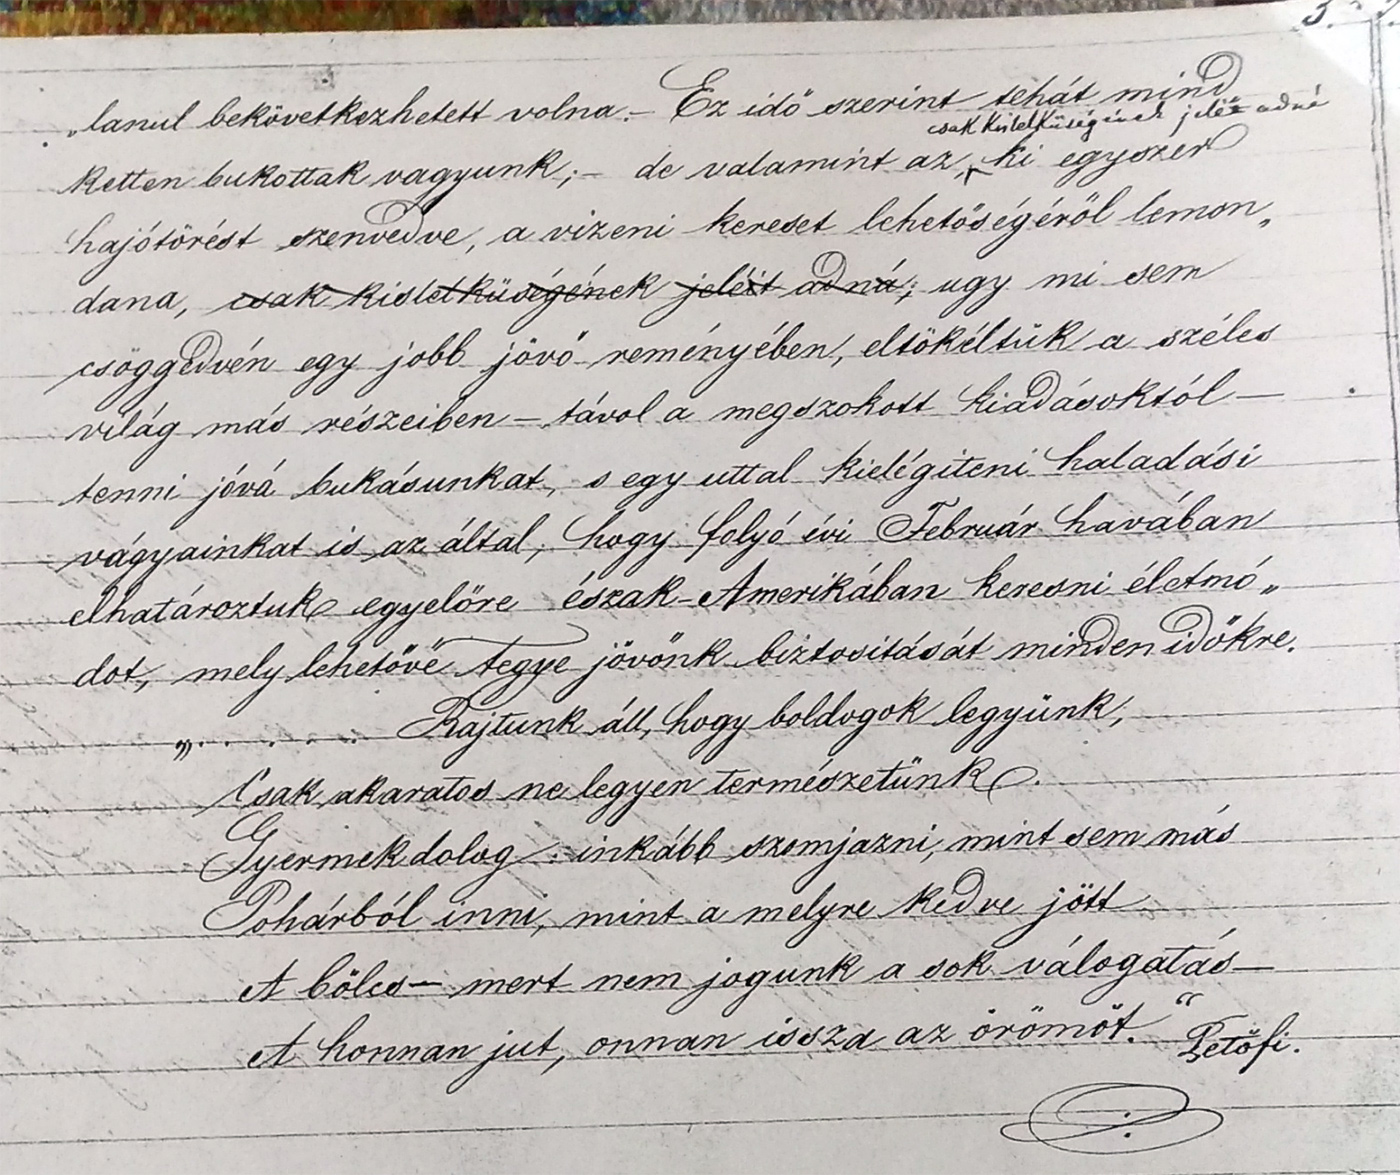 5.
„lanul bekövetkezhetett volna.- Ez idő szerint tehát mind
csak kislelküségének jeléit adná
ketten bukottak vagyunk;- de valamint az, ki egyszer
hajótörést szenvedve, a vizeni kereset lehetőségéről lemon„
dana, csak kislelküségének jeléit adná; ugy mi sem
csöggedvén egy jobb jövő reményében, eltökéltük a széles
világ más részeiben – távol a megszokott kiadásoktól –
tenni jóvá bukásunkat, s egy uttal kielégiteni haladási
vágyainkat is az által, hogy folyó évi Február havában
elhatároztuk egyelőre észak-Amerikában keresni életmó„
dot, mely lehetővé tegye jövőnk biztositását minden időkre.
„. . . . . . Rajtunk áll, hogy boldogok legyünk,
Csak akaratos ne legyen természetünk.
Gyermek dolog : inkább szomjazni, mint sem más
Pohárból inni, mint a melyre kedve jött
A bölcs – mert nem jogunk a sok válogatás –
A honnan jut, onnan issza az örömöt." Petőfi.